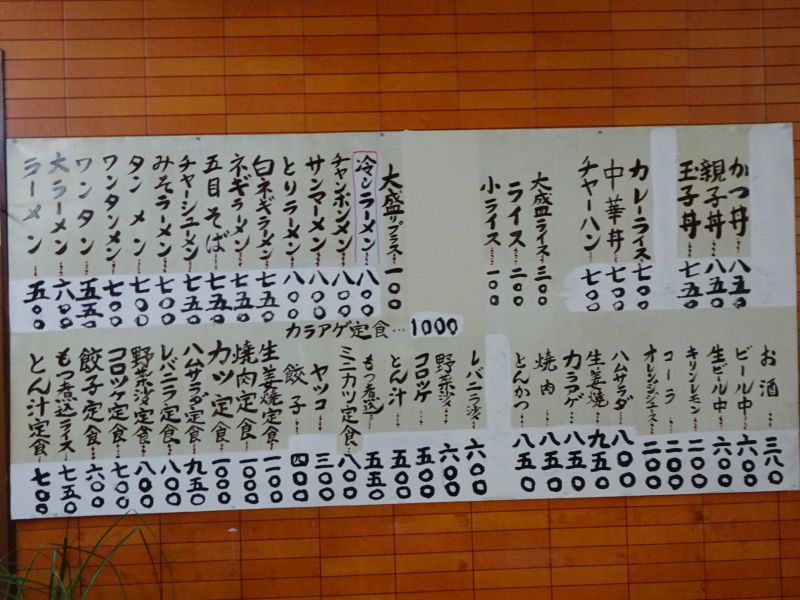 かつ丼 八五〇
親子丼 八五〇
玉子丼 七五〇
カレーライス 七〇〇
中華丼 七〇〇
チャーハン 七〇〇
大盛ライス 三〇〇
ライス 二〇〇
小ライス 一〇〇
大盛りプラス 一〇〇
冷しラーメン 八〇〇
チャンポンメン 八〇〇
サンマーメン 八〇〇
とりラーメン 八〇〇
白ネギラーメン 七五〇
ネギラーメン 七五〇
五目そば 七五〇
チャーシューメン 七五〇
みそラーメン 七〇〇
タンメン 七〇〇
ワンタンメン 七〇〇
ワンタン 五五〇
大ラーメン 六〇〇
ラーメン 五五〇
カラアゲ定食…1000
お酒 三八〇
ビール中 六〇〇
生ビール中 六〇〇
キリンレモン 二〇〇
コーラ 二〇〇
オレンジジュース 二〇〇
ハムサラダ 八〇〇
生姜焼 九五〇
カラアゲ 八五〇
焼肉 八五〇
とんかつ 八五〇
レバニラ炒 六〇〇
野菜炒 六〇〇
コロッケ 五〇〇
とん汁 五〇〇
もつ煮込 五五〇
ミニカツ定食 八〇〇
ヤッコ 三〇〇
餃子 四〇〇
生姜焼定食 一一〇〇
焼肉定食 一〇〇〇
カツ定食 一〇〇〇
ハムサラダ定食 九五〇
レバニラ定食 八〇〇
野菜炒定食 八〇〇
コロッケ定食 七〇〇
餃子定食 六〇〇
もつ煮込ライス 七五〇
とん汁定食 七〇〇